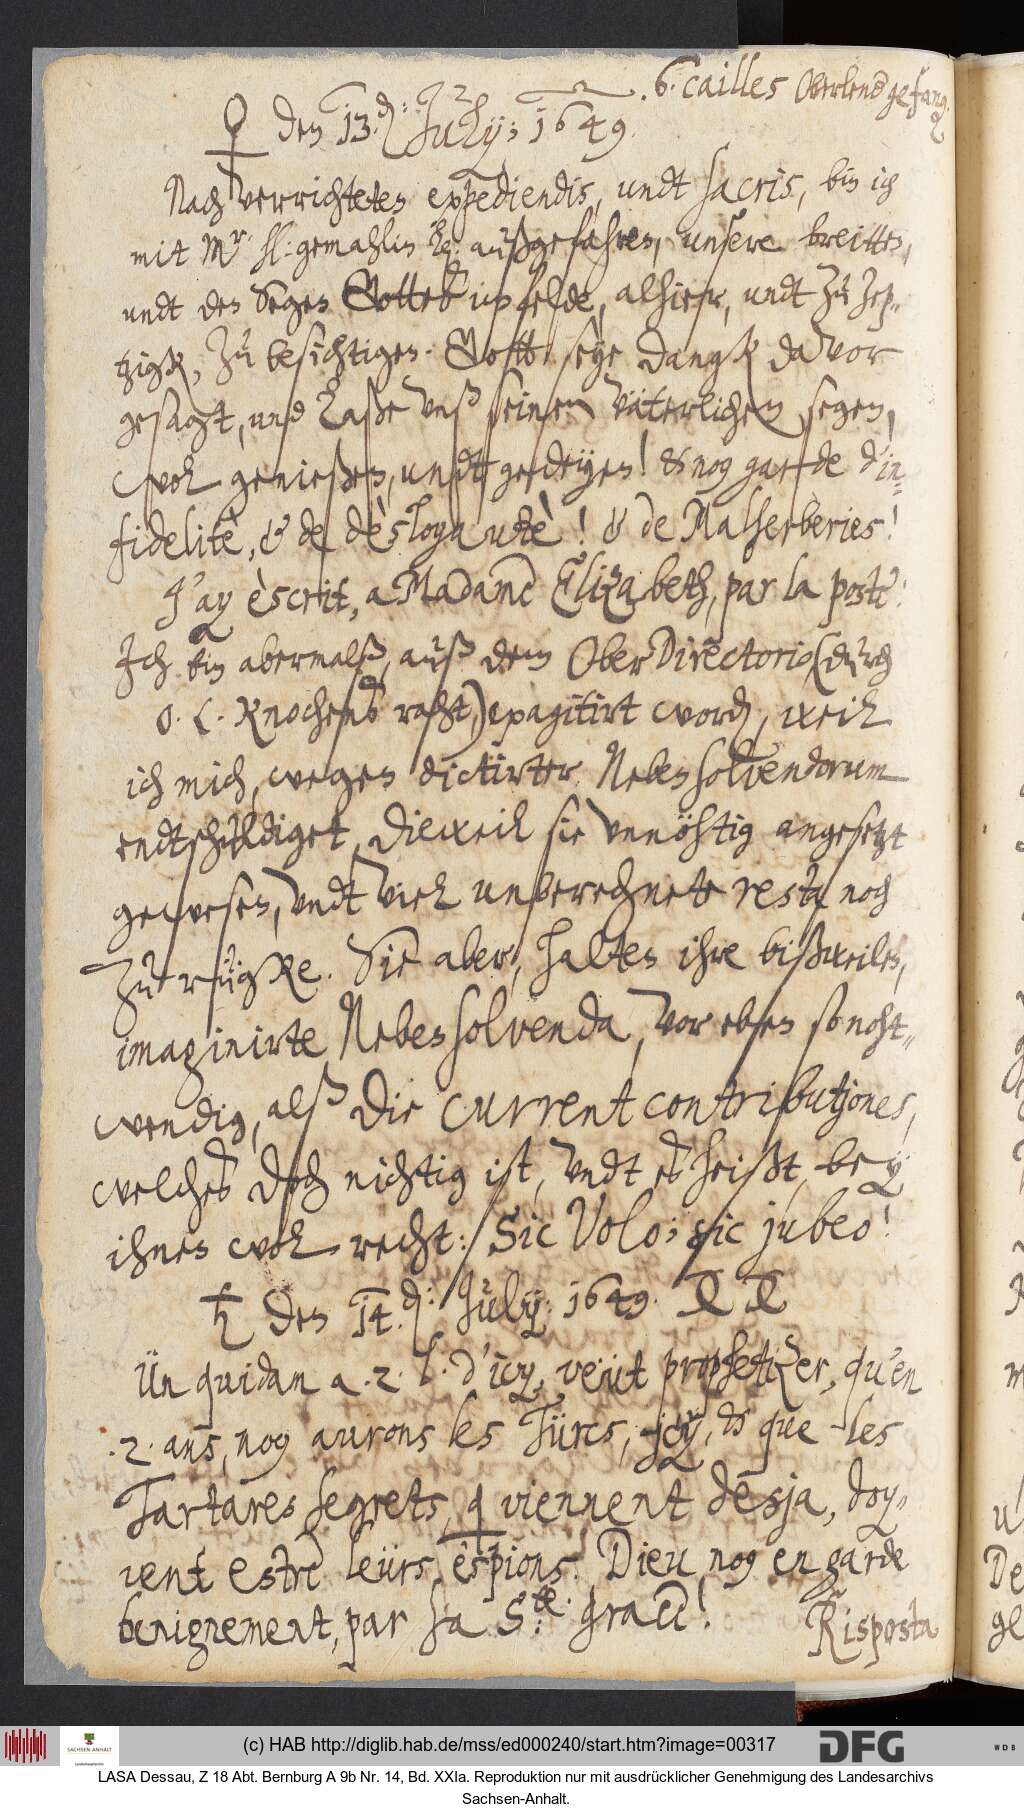 .6. cailles Oberlend gefang.
♀ den 13.d: July; 1649.
Nach verrichteten expediendis, undt sacris, bin ich
mit Mr. hl: gemahlin außgefahren, unsere breitten,
undt den Segen Gottes im felde, alhier, undt zu Zep-
tzigk, zu besichtigen. Gott seye dangk davor
gesagt, und laße unß seinen Väterlichen segen,
wol genießen, undt gedeyen! et nog garde d'in-
fidelitè, & de dèsloyautè! & de Malherberies!
J'ay èscrit, a Madame Elizabeth, par la poste.
Ich bin abermalß, auß dem Ober Directorio (durch
O. L. Knochens raht,) expagitirt word, weil
ich mich, wegen dictirter Neben solvendorum
endtschuldiget, dieweil sie unnöhtig angesetzt
gewesen, undt viel unberechnete resta noch
zu rügke. Sie aber, halten ihre bißweilen,
imaginirte Neben solvenda, vor eben so noht-
wendig, alß die current contributjones,
welches doch nichtig ist, undt es heißt, bey
ihnen wol recht: Sic Volo; sic jubeo!
♄ den 14.d: July: 1649.
Un quidam a .2. l. d'icy, veut prophetizer, qu'en
.2. ans, nog aurons les Türcs, icy, et que les
Tartares segrets, q viennent desja, doy-
vent estre leurs espions. Dieu nog en garde
benignement, par sa S:te. Grace!
Risposta
(c) HAB http://diglib.hab.de/mss/ed000240/start.htm?image=00317
SACHSEN-ANHALT
DFG
WDB
LASA Dessau, Z 18 Abt. Bernburg A 9b Nr. 14, Bd. XXIa. Reproduktion nur mit ausdrücklicher Genehmigung des Landesarchivs
Sachsen-Anhalt.